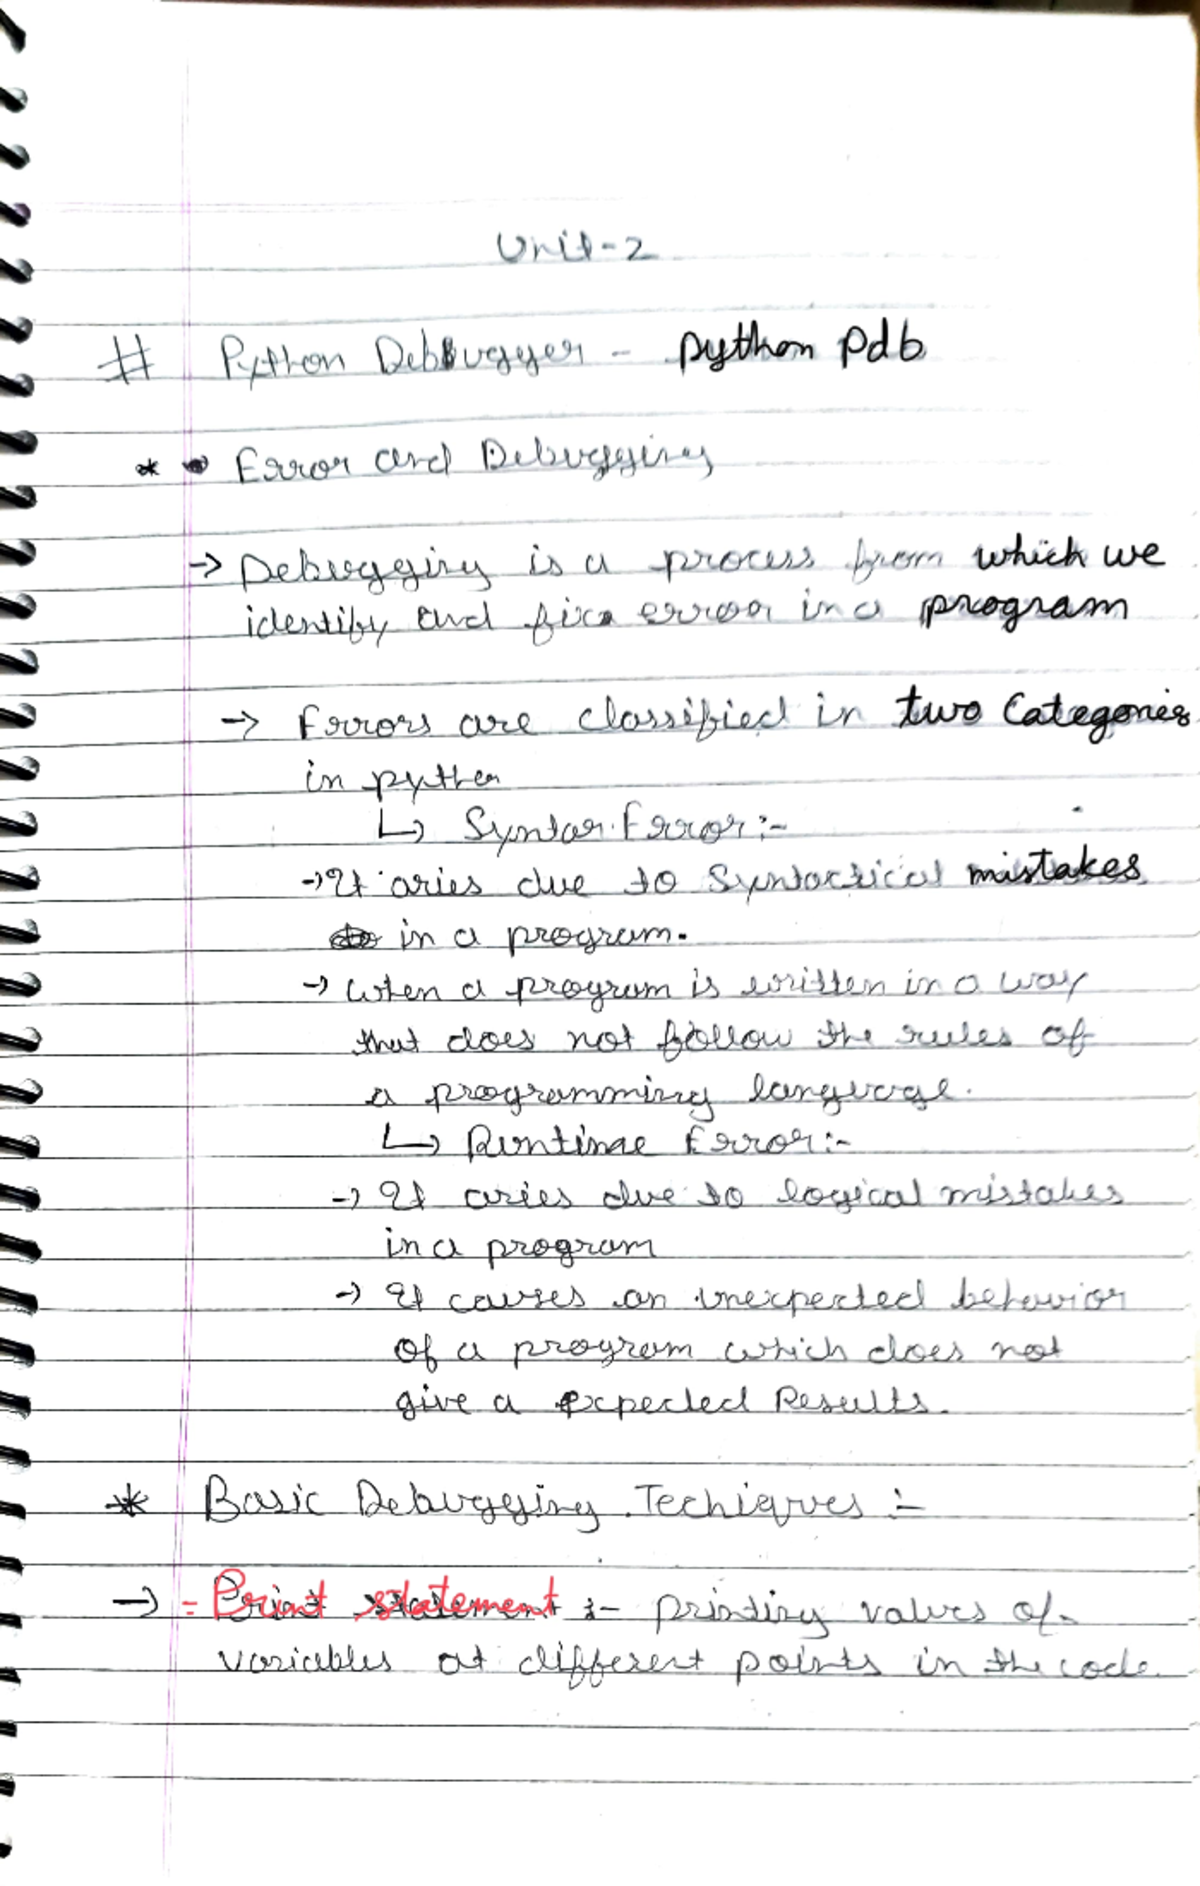 Unit-2
# Python Debugger - python Pdb
* • Error and Debugging
→ Debugging is a process from which we
identify and fix error in a program
→ Errors are classified in two Categories
in python
↳ Syntax Error:-
→ It aries due to Syntactical mistakes
in a program.
→ When a program is written in a way
that does not follow the rules of
a programming language.
↳ Runtime Error:-
→ It aries due to logical mistakes
in a program
→ It causes an unexpected behavior
of a program which does not
give a expected Results.
* Basic Debugging Techiques :-
→ = Print statement :- printing values of
variables at different points in the code.